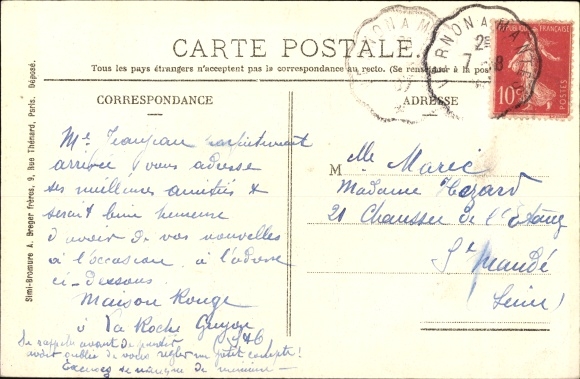 CARTE POSTALE.
Tous les pays étrangers n'acceptent pas la correspondance au recto. (Se renseigner à la pos
CORRESPONDANCE
ADRESSE
Simi-Bromure A. Breger frères, 9, Rue Thénard, Paris. Déposé.
VERNON A MA
2E
7
RÉPUBLIQUE FRANÇAISE
10c
POSTES
Me Jeanjean parfaitement
arrivée vous adresse
ses meilleures amitiés &
serait bien heureuse
d'avoir de vos nouvelles
à l'occasion à l'adresse
ci-dessous
Maison Rouge
à La Roche Guyon
S & O
avant de partir
avoir oublié de vous régler un petit compte !
Excusez
M
elle Marie
Madame Hozard
21 Chaussée de l'Etang
St Mandé
(Seine)